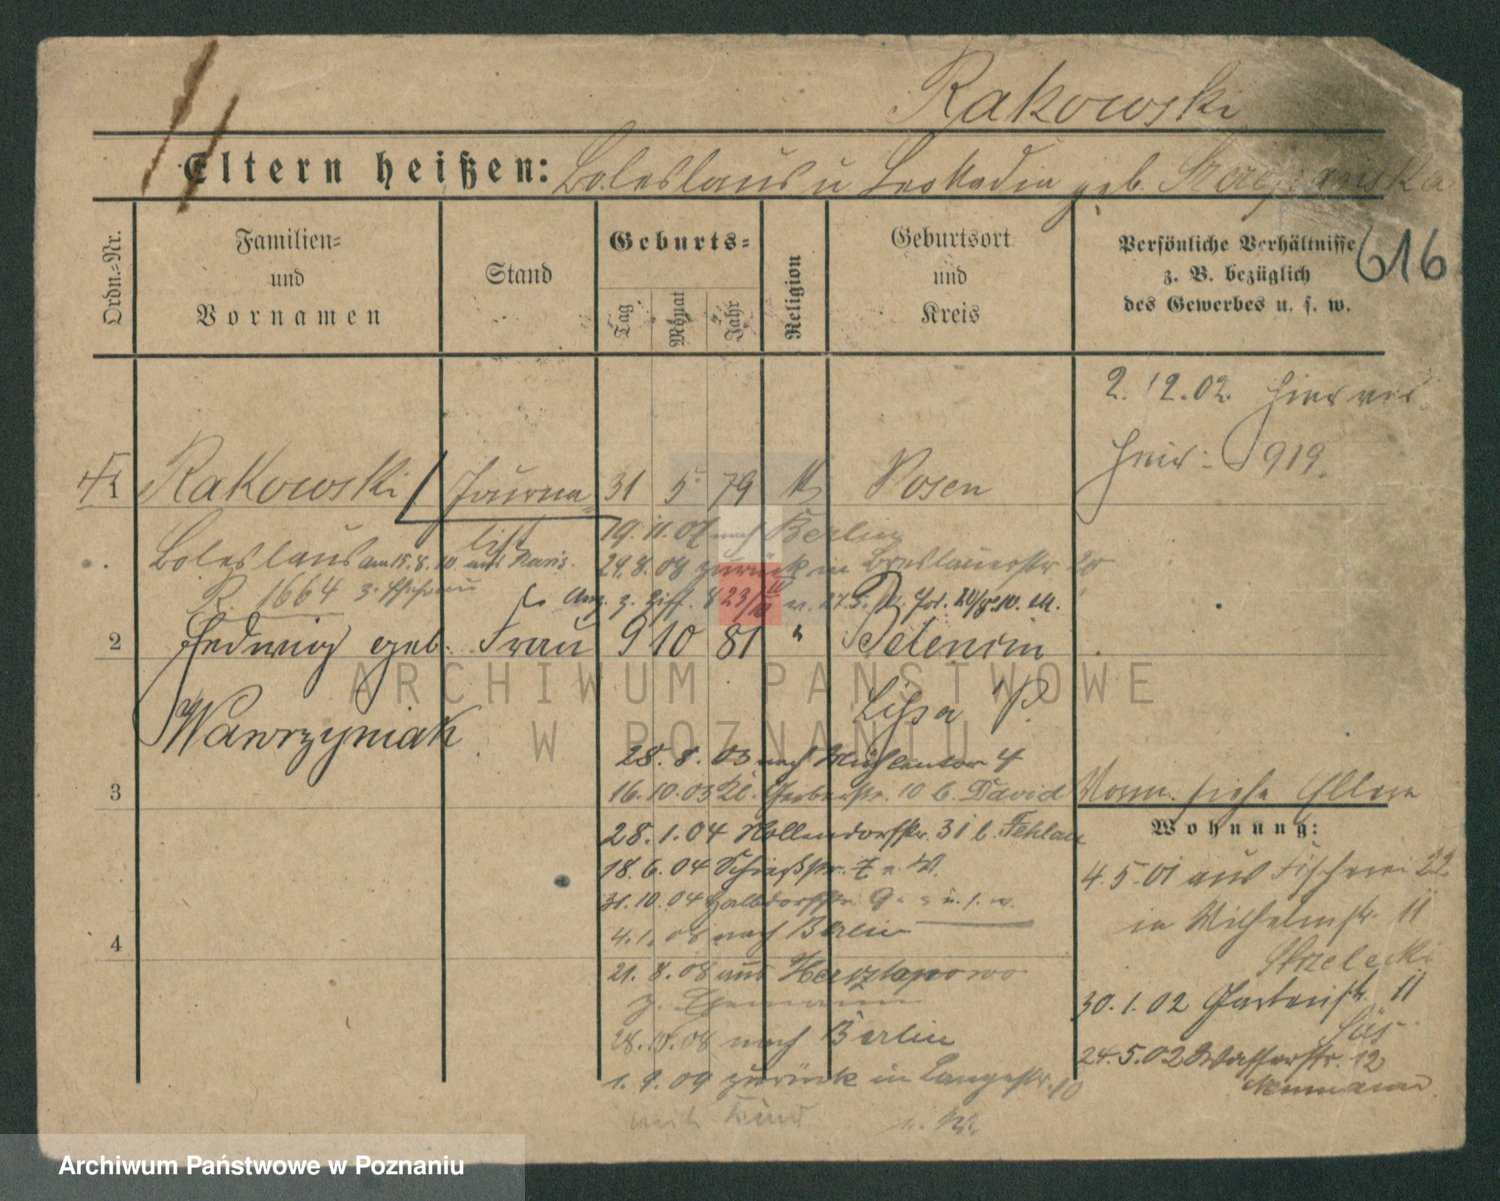 Rakowski
Eltern heißen: Boleslaus u Leokadia geb.
Ordn.-Nr.
Familien-
und
Vornamen
Stand
Geburts-
Tag
Monat
Jahr
Religion
Geburtsort
und
Kreis
Persönliche Verhältnisse
z. B. bezüglich
des Gewerbes u. s. w.
616
2. 12. 02. hier ver
heir: 919.
1 Rakowski Journa- 31 5 79 k Posen
list
19. 11. 07 nach Berlin
Boleslaus am 15. 8. 10. nach Paris.
29. 8. 08 zurück in Breslauerstr 20
R. 1664 z. Ehefrau
2 Hedwig geb. Frau 9 10 81 "
Wawrzyniak
Lissa P.
28. 8. 03 nach Mühlentor 4
3
16. 10. 03 Kl. Gerberstr. 10 b. David
28. 1. 04 Hollendorffstr. 31 b. Fehlau
18. 6. 04 Schießstr. 7 v. W.
31. 10. 04 Halbdorfstr. 9
4
4. 1. 08 nach Berlin
21. 8. 08 aus
28. 10. 08 nach Berlin
1. 9. 09 zurück in Langestr. 10
mit Kind
v. W.
Vorm. siehe Eltern
Wohnung:
4. 5. 01 aus Fischerei 22
in Wilhelmstr. 11
Strzelecki
30. 1. 02 Gartenstr. 11
24. 5. 02 Wasserstr. 12
Neumann
ARCHIWUM PAŃSTWOWE
W POZNANIU
Archiwum Państwowe w Poznaniu